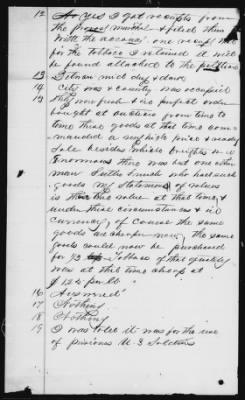 12 Yes I got receipts from
the Provost Marshal & filed them
with the account one receipt
for the tobacco I retained it will
be found attached to the petition
13 Between mid day & dark
14 City was & country was occupied
15 They were fresh & in perfect order
bought at auction from time to
time these goods at that time com
manded a very high price & ready
Sale besides which brought me in
Enormous there was but one other
man who had such
goods My Statement of values
is the value at that time &
under these circumstances & in
currency, of Course the same
goods are cheaper now, The same
goods could now be purchased
for 1/3 Tobacco of that quality
was at that time cheap at
$1.25 per lb
16 Answered
17 Nothing
18 Nothing
19 I was told it was for the use
of provisions U.S Soldiers